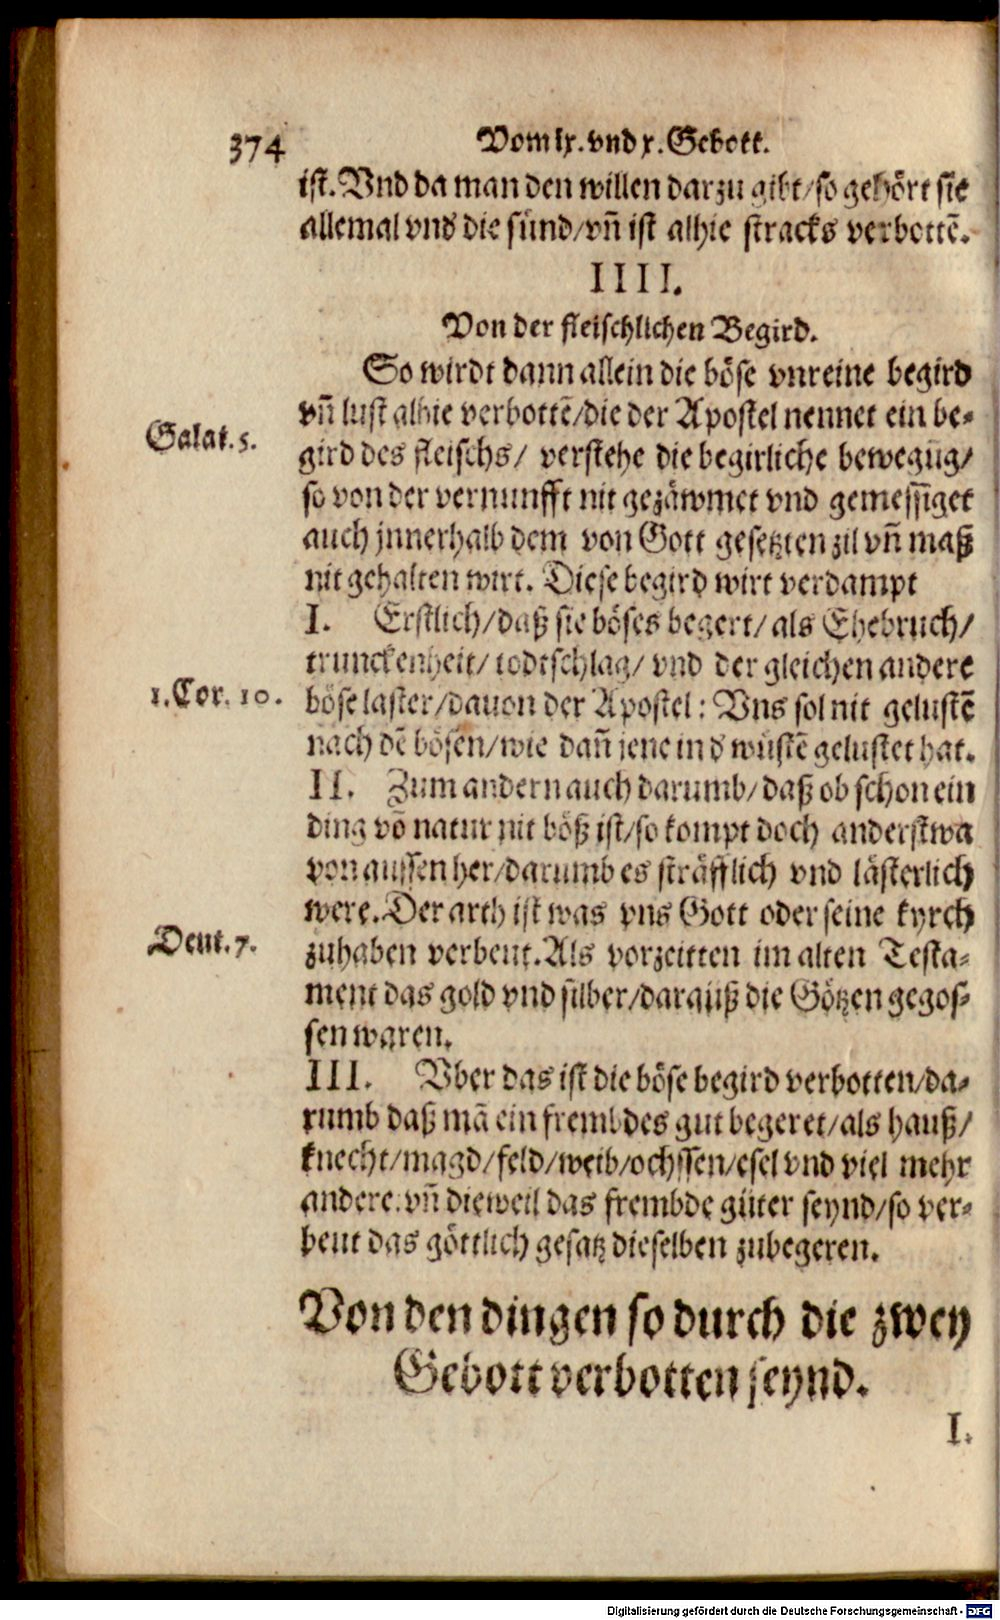 374 Vom ix. vnd x. Gebott.
ist. Vnd da man den willen darzu gibt/so gehört sie
allemal vnd die sünd/vñ ist alhie stracks verbottẽ.
IIII.
Von der fleischlichen Begird.
So wirdt dann allein die böse vnreine begird
vñ lust alhie verbottẽ/die der Apostel nennet ein be-
Galat. 5.
gird des fleischs/ verstehe die begirliche bewegũg/
so von der vernunfft nit gezäwmet vnd gemessiget
auch jnnerhalb dem von Gott gesetzten zil vñ maß
nit gehalten wirt. Diese begird wirt verdampt
I. Erstlich/daß sie böses begert/als Ehebruch/
trunckenheit/todtschlag/ vnd der gleichen andere
1. Cor. 10.
böse laster/dauon der Apostel: Vns sol nit gelustẽ
nach dẽ bösen/wie dañ jene in d wüstẽ gelustet hat.
II. Zum andern auch darumb/daß ob schon ein
ding võ natur nit böß ist/so kompt doch anderstwa
von aussen her/darumb es sträfflich vnd lästerlich
were. Der arth ist was vns Gott oder seine kyrch
Deut. 7.
zuhaben verbeut. Als vorzeitten im alten Testa-
ment das gold vnd silber/darauß die Götzen gegos-
sen waren.
III. Vber das ist die böse begird verbotten/da-
rumb daß mã ein frembdes gut begeret/als hauß/
knecht/magd/feld/weib/ochssen/esel vnd viel mehr
andere: vñ dieweil das frembde güter seynd/so ver-
beut das göttlich gesatz dieselben zubegeren.
Von den dingen so durch die zwey
Gebott verbotten seynd.
I.
Digitalisierung gefördert durch die Deutsche Forschungsgemeinschaft - DFG